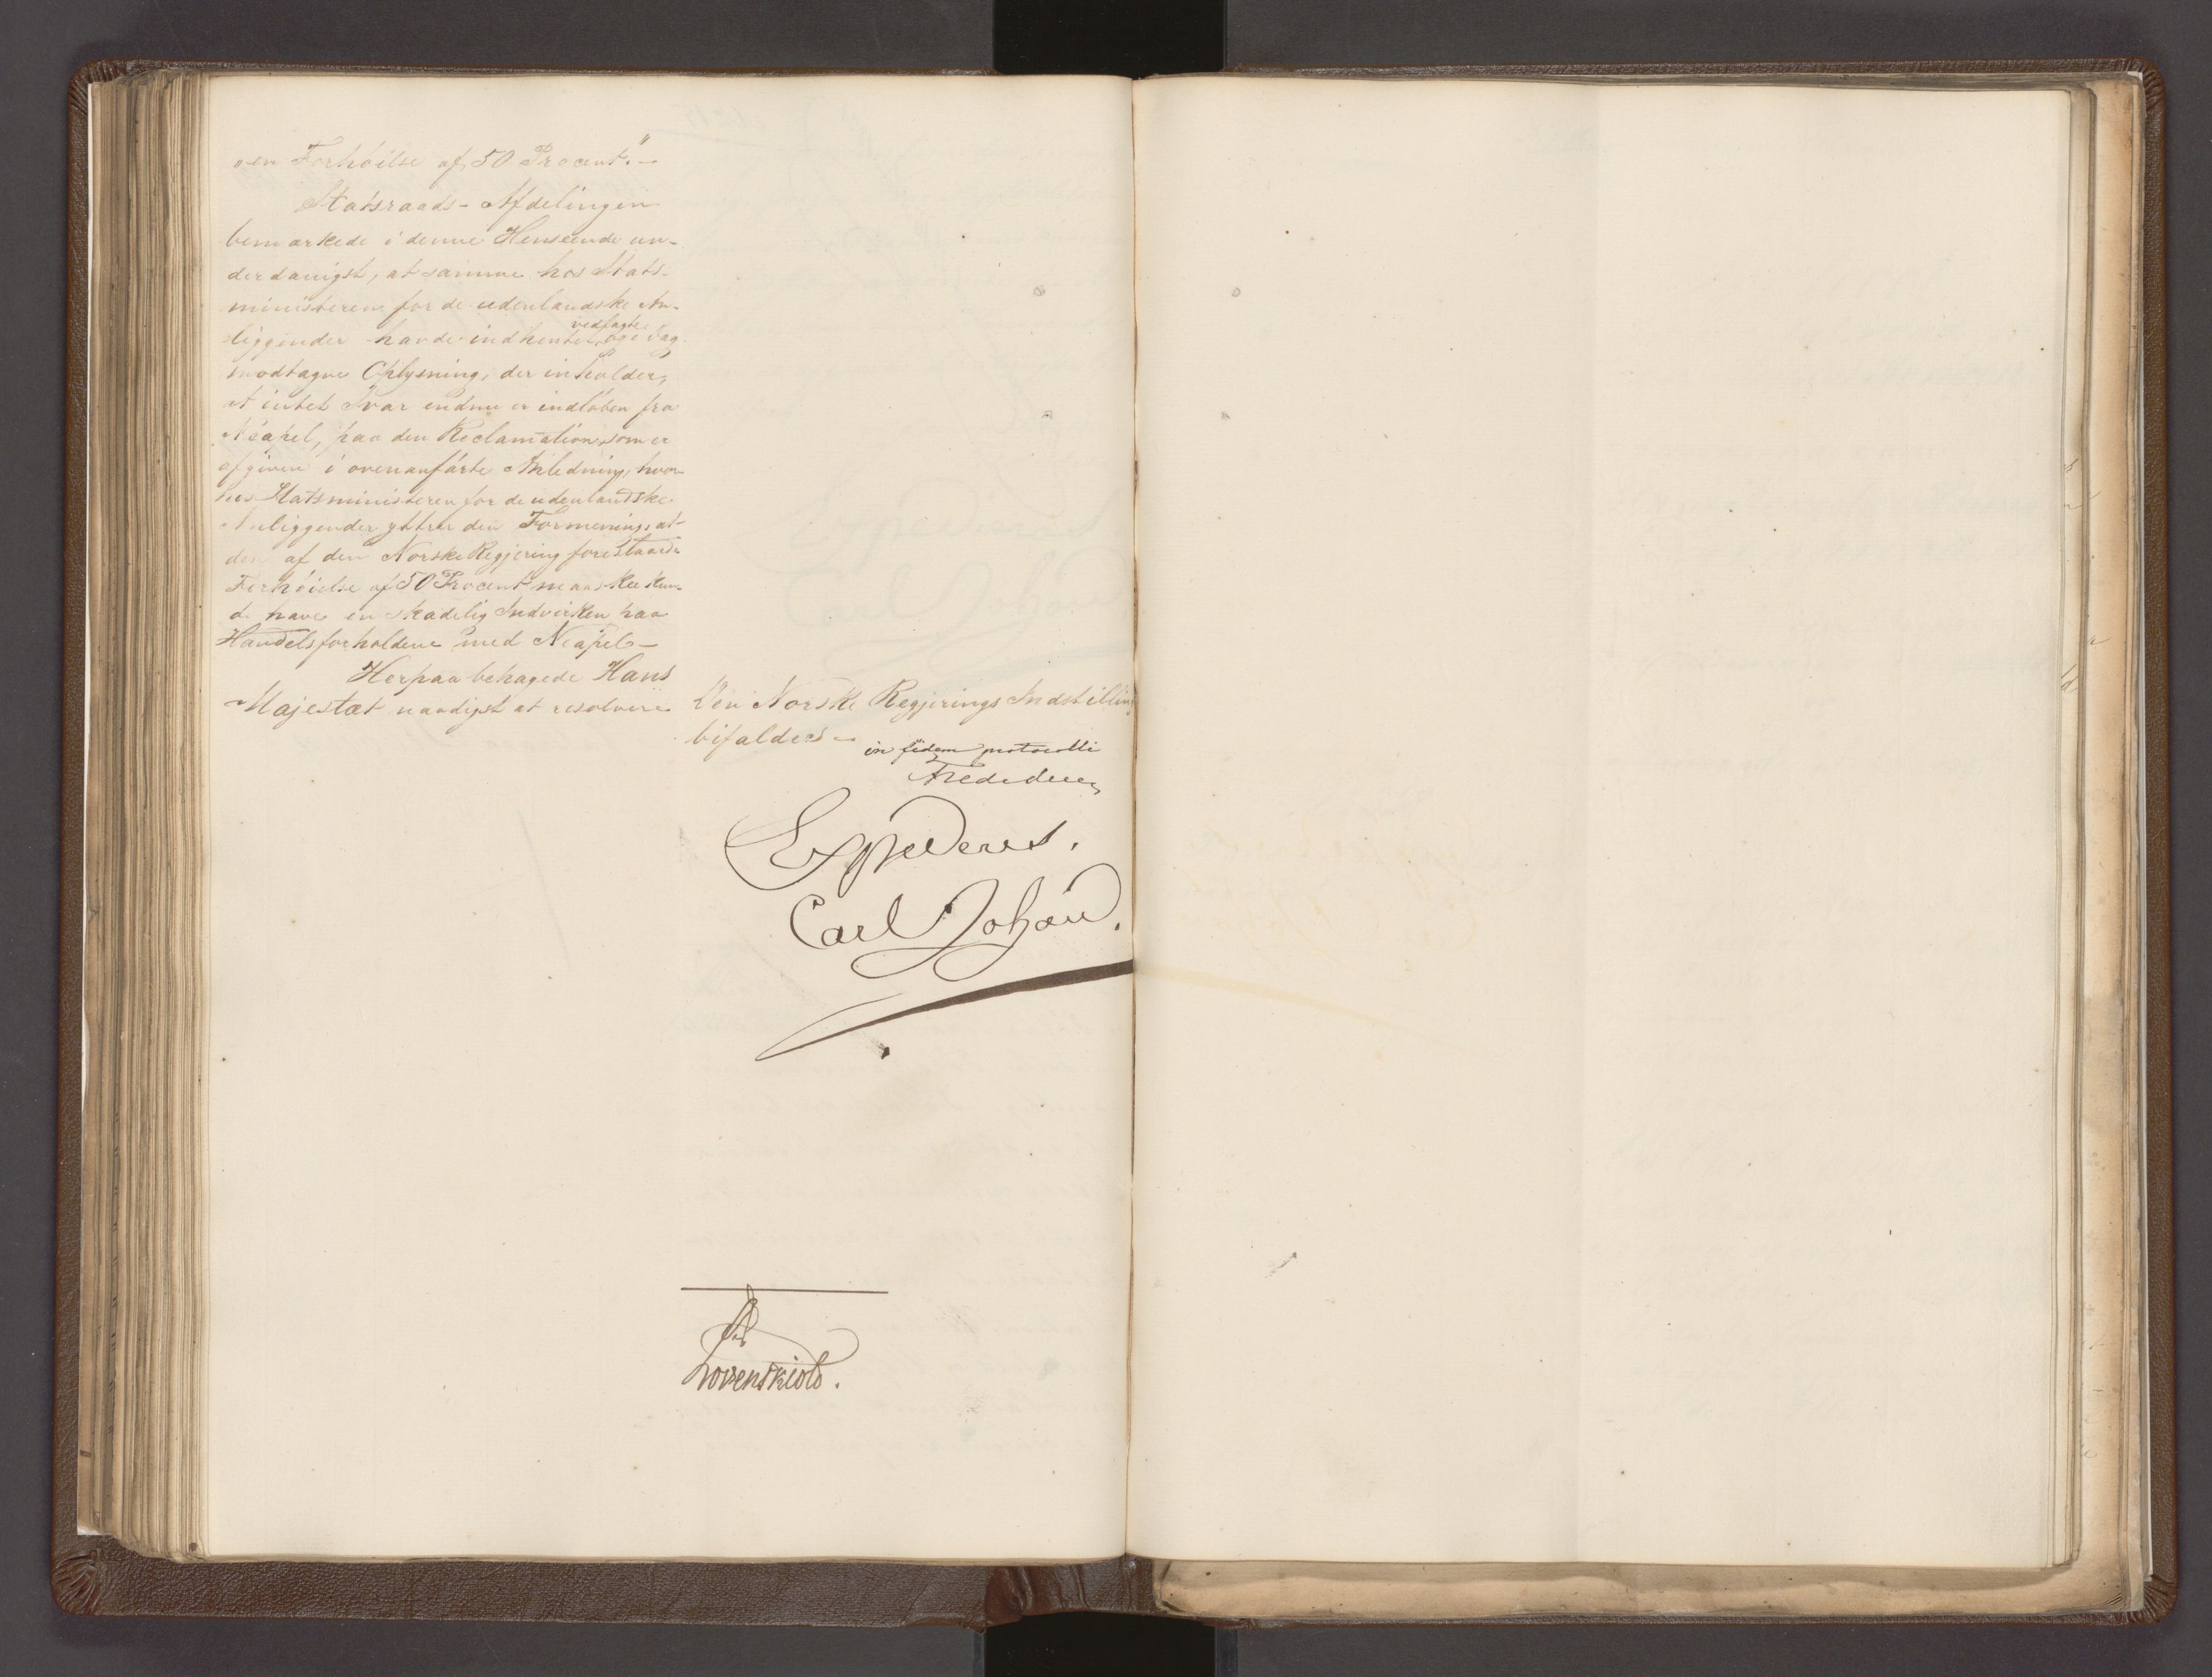 „en Forhöilse af 50 Procent."—
Statsraads-Afdelingen
bemærkede i denne Henseende un-
derdanigst, at samme hos Stats-
ministeren for de udenlandske An-
liggender havde indhentet vedlagte, og i Dag
modtagne Oplysning, der inholder,
at intet Svar endnu er indløben fra
Neapel, paa den Reclamation, som er
afgiven i ovenanførte Anledning, hvor-
hos Statsministeren for de udenlandske
Anliggender yttrer den Formening, at
den af den Norske Regjering foreslaaede
Forhöielse af 50 Procent maaskee kun-
de have en skadelig Indvirken paa
Handelsforholdene med Neapel—
Herpaa behagede Hans
Majestæt naadigst at resolvere
Den Norske Regjerings Indstilling
bifaldes—
in fidem protocolli
Expederes.
Carl Johan.
Løvenskiold.